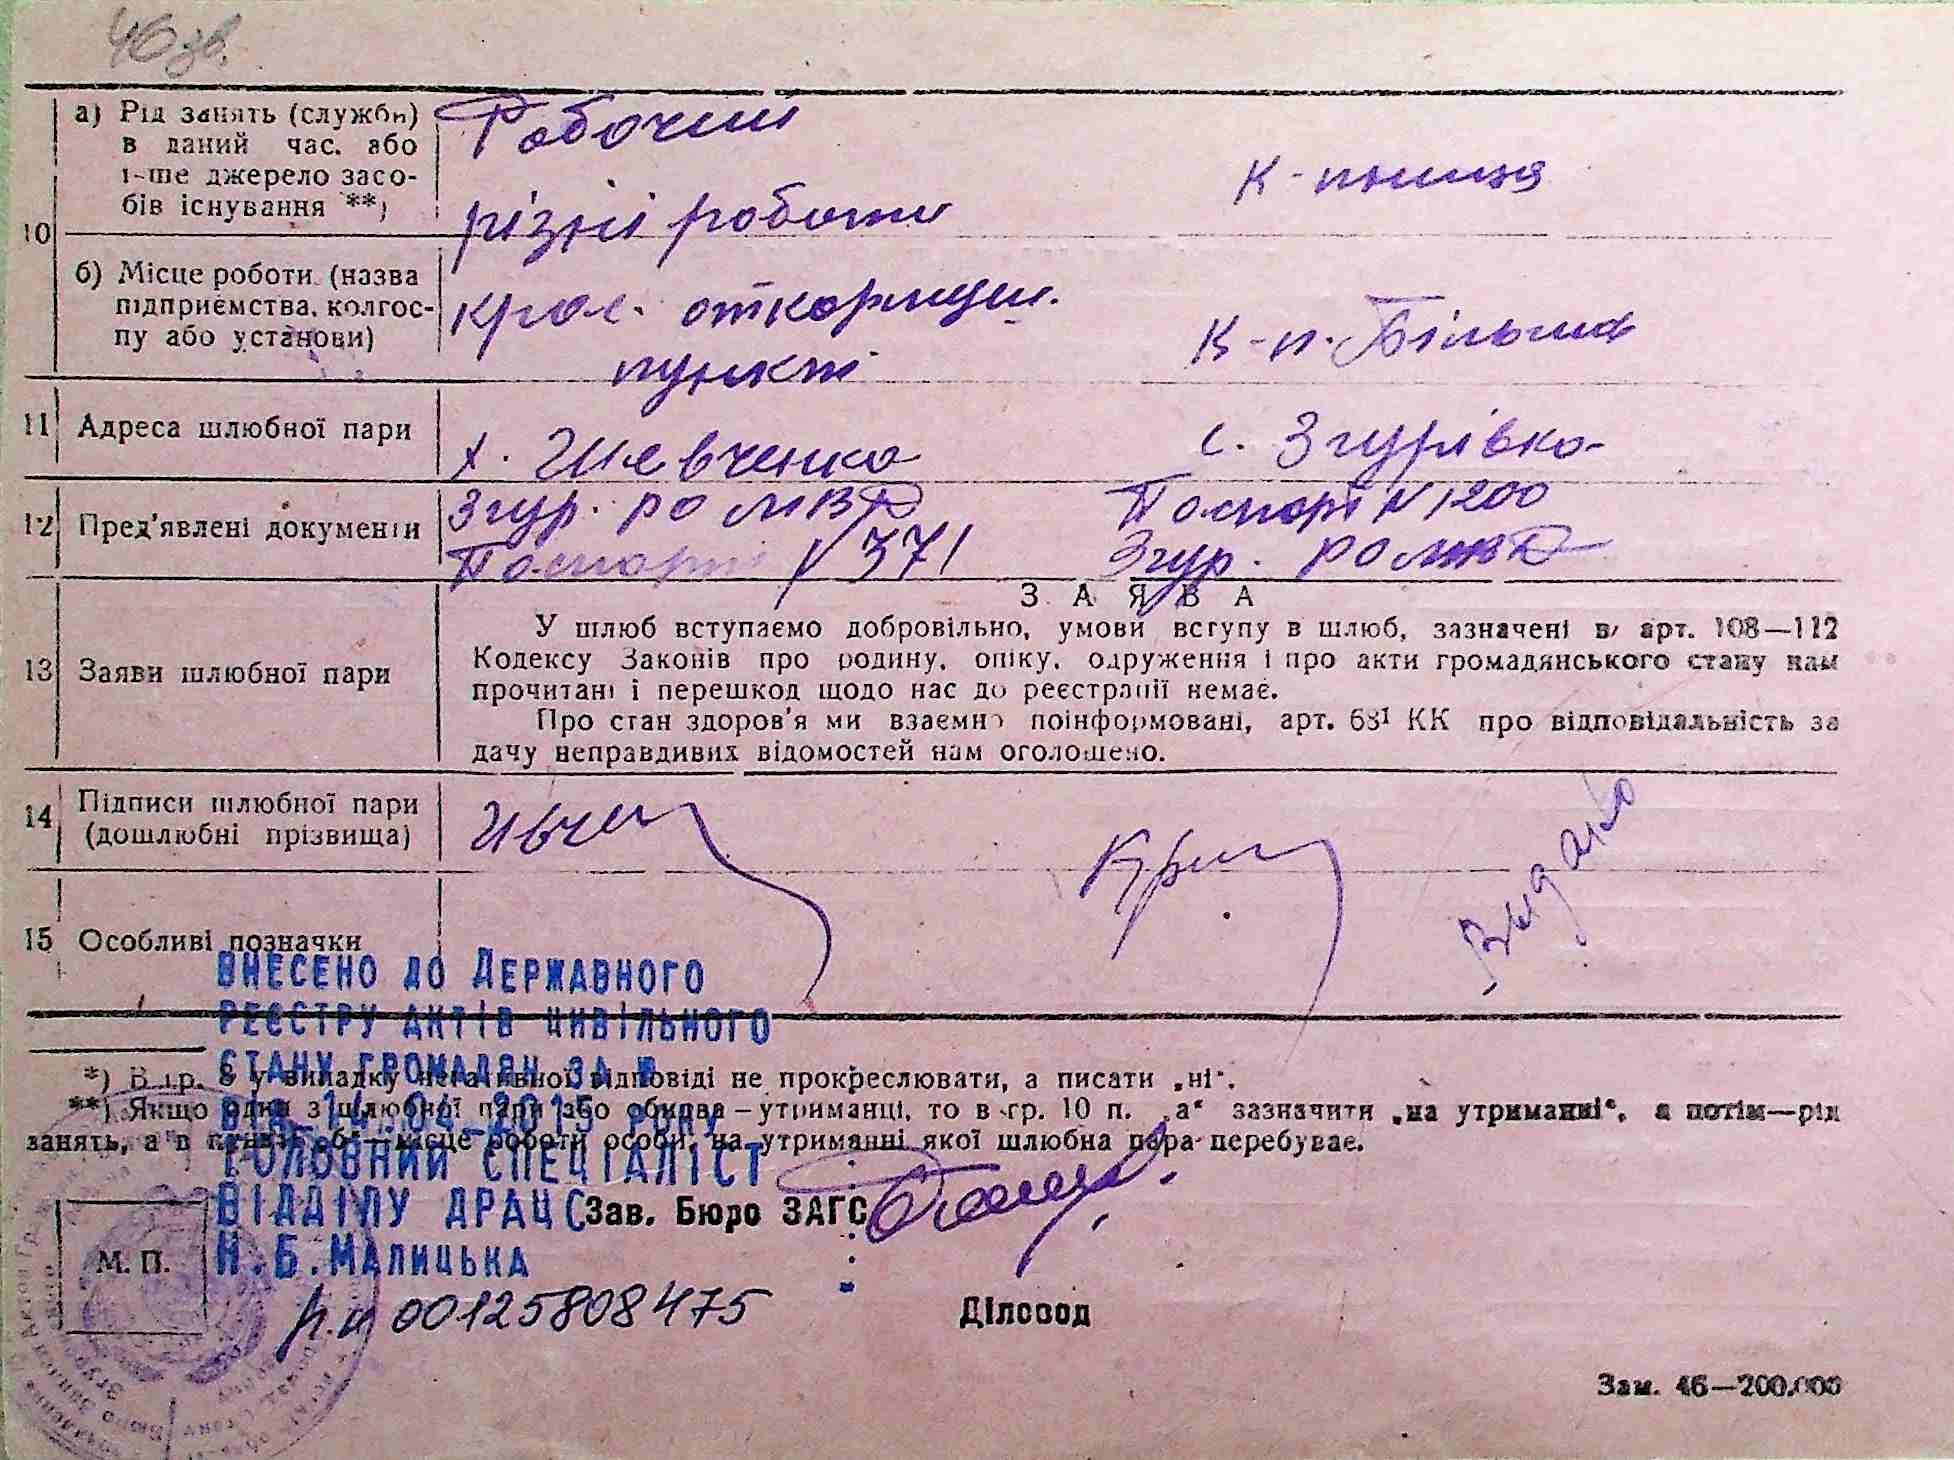 40 зв.
а) Рід занять (служби) в даний час. або і-ше джерело засобів існування **)
Робочий
різні роботи
К-пниця
10
б) Місце роботи. (назва підприємства. колгоспу або установи)
крол. откормоч.
пункті
К-п. Більшов
11 Адреса шлюбної пари
х. Шевченка
с. Згурівка
12 Пред'явлені документи
Згур. РО МВД
Паспорт № 371
Паспорт № 1200
Згур. РО МВД
13 Заяви шлюбної пари
З А Я В А
У шлюб вступаємо добровільно, умови вступу в шлюб, зазначені в арт. 108—112
Кодексу Законів про родину, опіку, одруження і про акти громадянського стану нам
прочитані і перешкод щодо нас до реєстрації немає.
Про стан здоров'я ми взаємно поінформовані, арт. 68¹ КК про відповідальність за
дачу неправдивих відомостей нам оголошено.
14 Підписи шлюбної пари
(дошлюбні прізвища)
15 Особливі позначки
Видано
ВНЕСЕНО ДО ДЕРЖАВНОГО
РЕЄСТРУ АКТІВ ЦИВІЛЬНОГО
СТАНУ ГРОМАДЯН ЗА №
ВІД 14.04.2015 РОКУ
ГОЛОВНИЙ СПЕЦІАЛІСТ
ВІДДІЛУ ДРАЦС
Н.Б.МАЛИЦЬКА
*) В гр. 8 у випадку негативної відповіді не прокреслювати, а писати „ні“.
**) Якщо один з шлюбної пари або обидва—утриманці, то в гр. 10 п. „а“ зазначити „на утриманні“, а потім—рід
занять, а в пункті „б“—місце роботи особи, на утриманні якої шлюбна пара перебуває.
М. П.
Зав. Бюро ЗАГС
00125808475
Діловод
Зам. 46—200.000